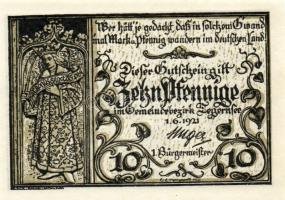 Wer hätt' je gedacht, daß in solchem Gwand
mal Mark u. Pfennig wandern im deutschen Land!
Dieser Gutschein gilt
Zehn Pfennige
im Gemeindebezirk Tegernsee
1.6.1921
1. Bürgermeister
10
10